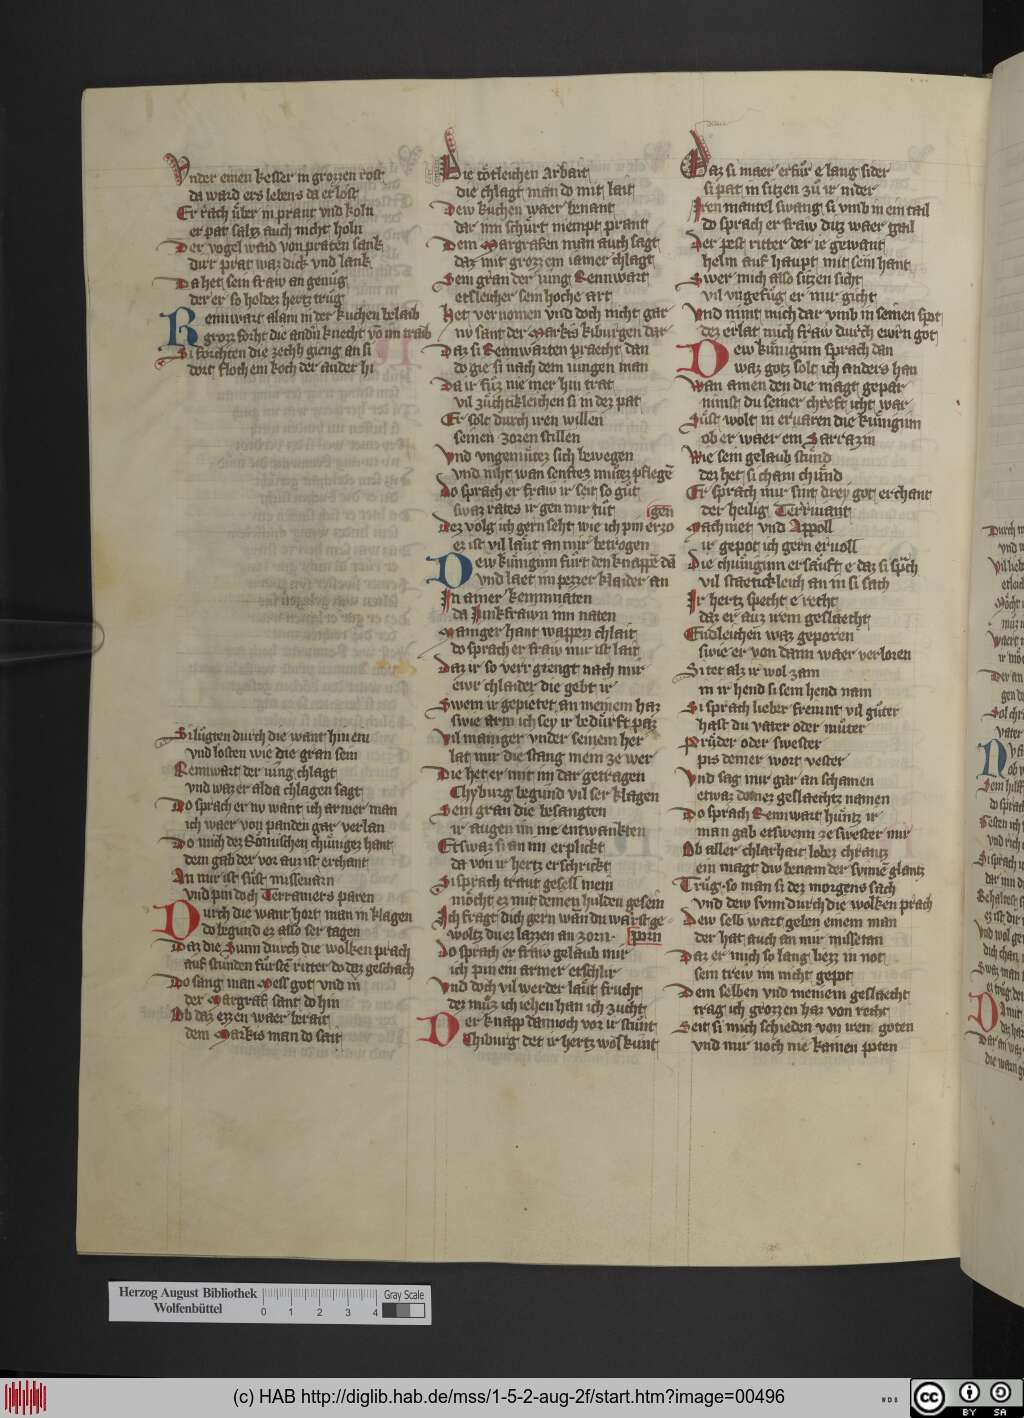 Vnder einen kesser in grozzen rost
da ward ers lebens da erlost
Er rach über in prant vnd koln
er pat saltz auch nicht holn
Der vogel waid von praten sank
dürr prat waz dick vnd lank
Da het sein fraw an genüg
der er so holdez hertz trüg
Rennwart alain in der kuchen belaib
grozz forht die andñ knecht võ im traib
Si forchten die zechh gieng an si
dort floch ein koch der ander hi
Si lügten durch die want hin ein
vnd losten wie die gran sein
Rennwart der iüng chlagt
vnd waz er alda chlagen sagt
Do sprach er nv want ich armer man
ich waer von panden gar verlan
Do mich der Römischen chüniges hant
dem gab der vor auz ist erchant
An mir ist süst missevarn
vnd pin doch Terramers paren
Durch die want hort man in klagen
do begund ez also ser tagen
Daz die Sunn durch die wolken prach
auf stünden fürstẽ ritter do daz geschach
Do sang man Mess got vnd in
der Margraf sant do hin
Ob daz ezzen waer berait
dem Markis man do sait
Die tötleichen Arbait
die chlagt man do mit lait
Dew kuchen waer benant
dar inn schürt niempt prant
Dem Margrafen man auch sagt
daz mit grozzem iamer chlagt
Sein gran der iung Rennwart
etsleicher sein hoche art
Het vernomen vnd doch nicht gar
nv sant der Markis kiburgen dar
Daz si Rennwarten praecht dan
do gie si nach dem iungen man
Da ir füz nie mer hin trat
vil züchtikleichen si in dez pat
Er solt durch iren willen
seinen zoren stillen
Vnd vngemütez sich bewegen
vnd niht wan senftez mütez pflegẽ
Do sprach er fraw ir seit so güt
swaz rates ir gen mir tüt
igen
Dez volg ich gern seht wie ich pin erzo
ez ist vil laut an mir betrogen
Dew künginn fürt den knappẽ dã
vnd laet im pezzer klaider an
In ainer kemmnaten
da Junkfrawn inn naten
Maniger hant wappen chlait
do sprach er fraw mir ist lait
Daz ir so verr giengt nach mir
ewr chlaider die gebt ir
Swem ir gepietet an meinem haz
swie arm ich sey ir bedürft paz
Vil maniger vnder seinem her
lat mir die stang mein ze wer
Die het er mit im dar getragen
Chyburg begund vil ser klagen
Sein gran die besangten
ir augen im nie entwankten
Etswaz si an im erplickt
da von ir hertz erschrickt
Si sprach traut gesell mein
möcht ez mit deinen hulden gesein
Ich fragt dich gern wan du warst ge
woltz du ez lazzen an zorn. porn
Do sprach er fraw gelaub mir
ich pin ein armer etschlir
Vnd doch vil werder laüt frücht
dez müz ich iehen han ich zucht
Der knapp dannoch vor ir stünt
Chiburg det ir hertz wol kunt
Daz si maer erfür e lang sider
si pat in sitzen zü ir nider
Iren mantel swang si vmb in ein tail
do sprach er fraw ditz waer gail
Der pest ritter der ie gewant
helm auf haupt mit sein hant
Swer mich also sitzen sicht
vil vngefüg er mir gicht
Vnd nimt mich dar vmb in seinen spot
dez erlat mich fraw durch ewrn got
Dew künginn sprach dan
waz gotz solt ich anders han
Wan ainen den die magt gepar
nimst du seiner chreft icht war
Süst wolt in ervaren die künginn
ob er waer ein Sarrazin
Wie sein gelaub stünd
dez het si chain chünd
Er sprach mir sint drey got erchant
der heilig Terrviant
Machmet vnd Appoll
ir gepot ich gern ervoll
Die chünginn ersauft e daz si sprch
vil staetickleich an in si sach
Ir hertz specht e recht
daz er auz irem geslaecht
Endleichen waz geporen
swie er von dann waer verloren
Si tet alz ir wol zam
in ir hend si sein hend nam
Si sprach lieber freunt vil güter
hast du vater oder müter
Prüder oder swester
pis deiner wort vester
Vnd sag mir gar an schamen
etwaz deinez geslaechtz namen
Do sprach Rennwart hüntz ir
man gab etswenn ze swester mir
Ob aller chlarhait lobez chrantz
ein magt diw benam der svnnẽ glantz
Trüg. so man si dez morgens sach
vnd dew svnn durch die wolken prach
Dew selb wart geben einem man
der hat auch an mir missetan
Daz er mich so lang lezz in not
sein trew im nicht gepot
Dem selben vnd meinem geslaecht
trag ich grozzen haz von recht
Seit si mich schieden von iren goten
vnd mir noch nie kamen poten
Herzog August Bibliothek
Wolfenbüttel
0 1 2 3 4
Gray Scale
(c) HAB http://diglib.hab.de/mss/1-5-2-aug-2f/start.htm?image=00496
WDB
cc
BY SA